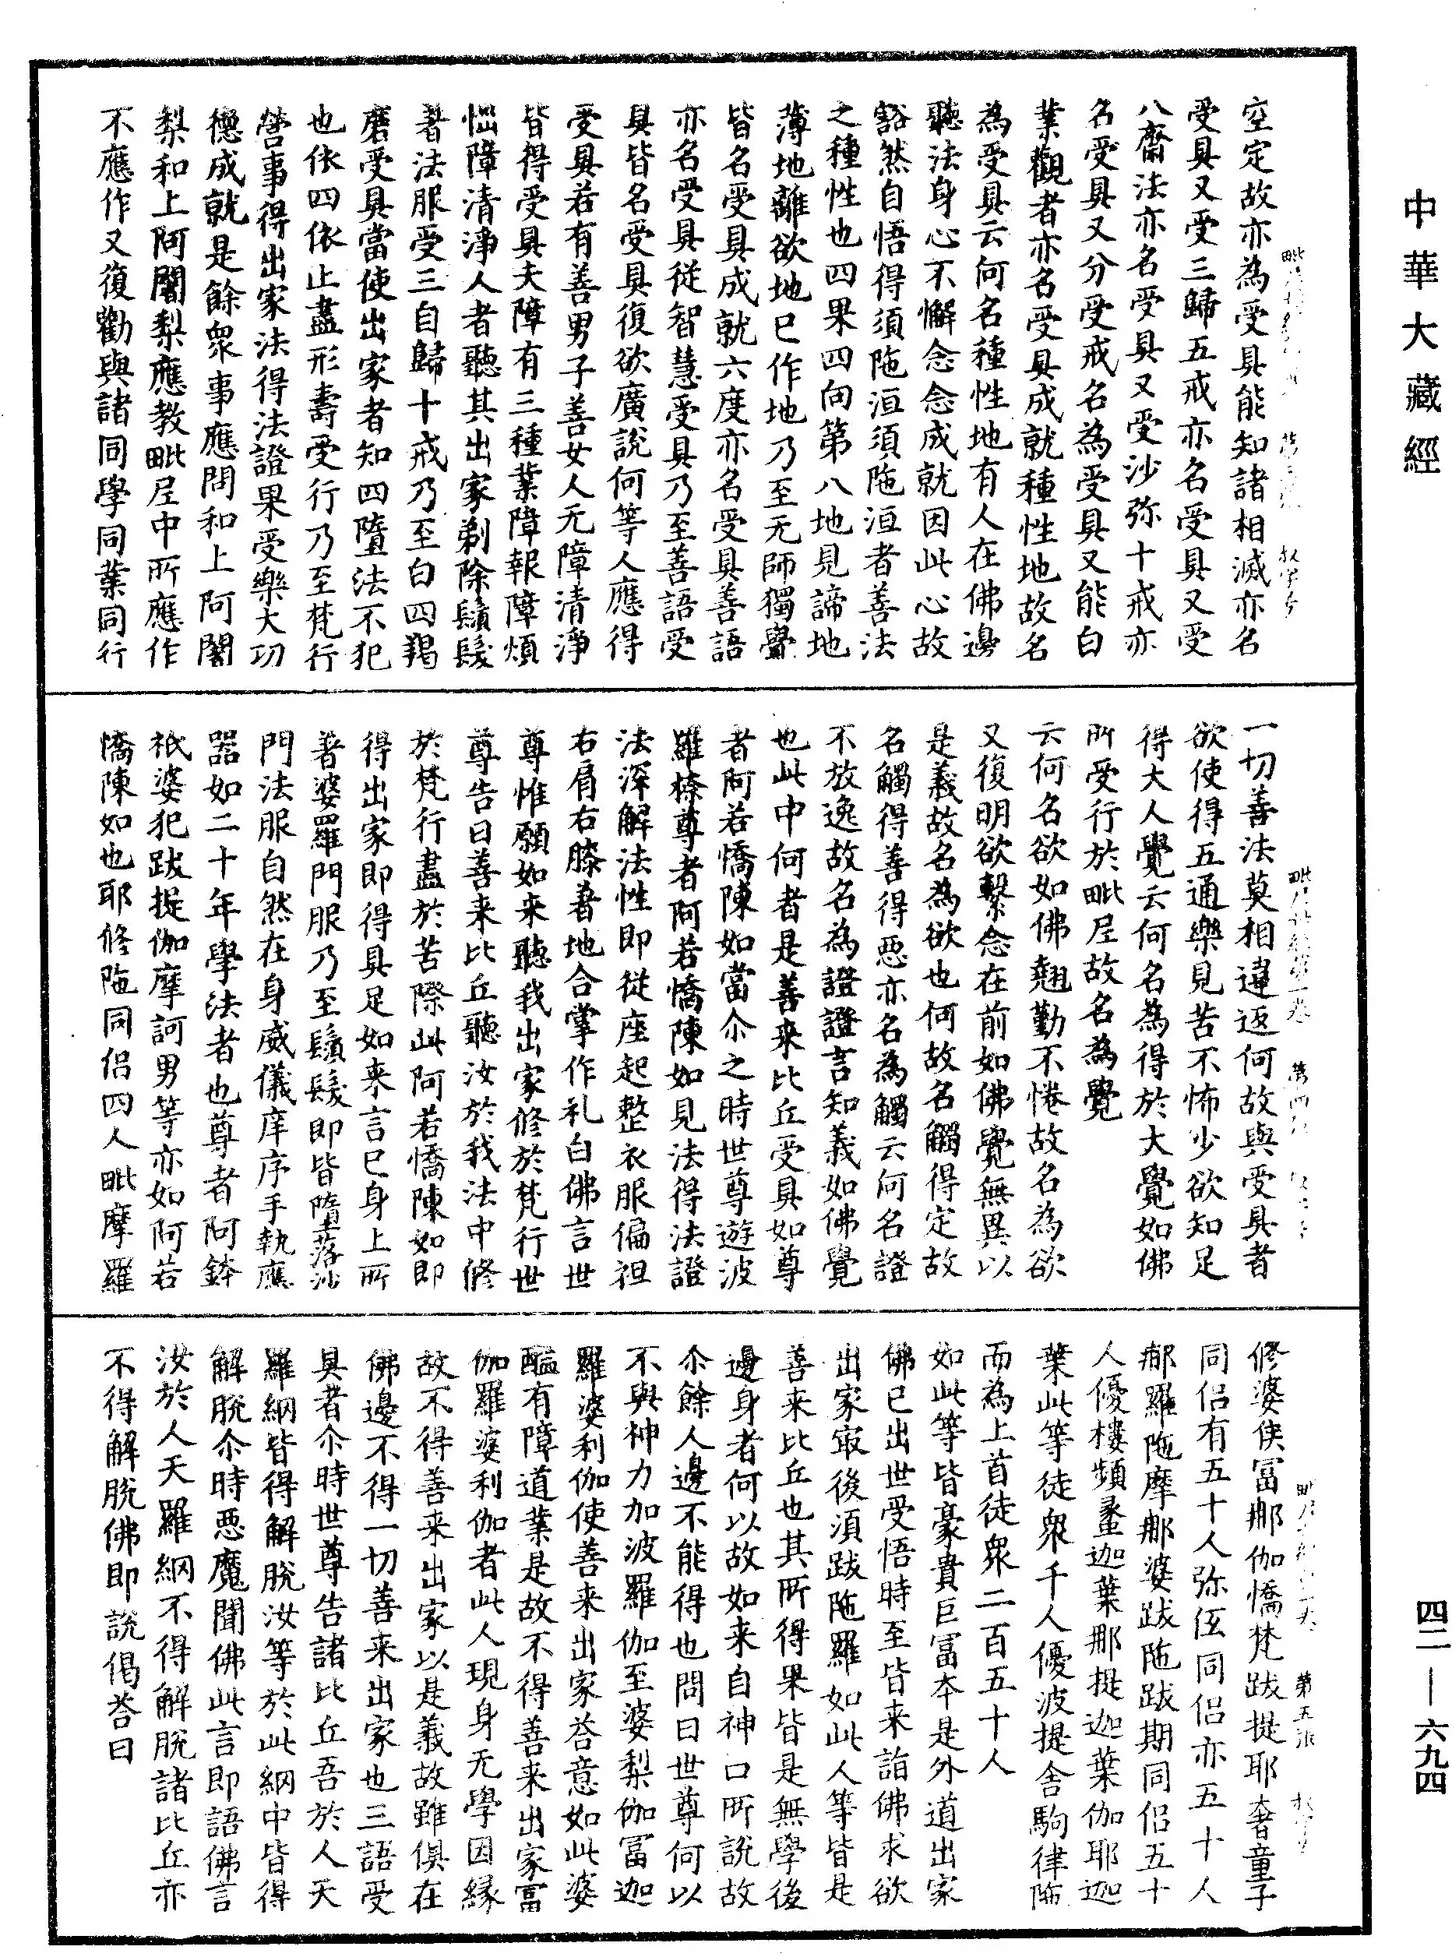 中華大藏經
空定故亦為受具能知諸相滅亦名
受具又受三歸五戒亦名受具又受
八齋法亦名受具又受沙弥十戒亦
名受具又分受戒名為受具又能白
業觀者亦名受具成就種性地故名
為受具云何名種性地有人在佛邊
聽法身心不懈念念成就因此心故
豁然自悟得須陁洹須陁洹者善法
之種性也四果四向第八地見諦地
薄地離欲地已作地乃至无師獨覺
皆名受具成就六度亦名受具善語
亦名受具從智慧受具乃至善語受
具皆名受具復欲廣說何等人應得
受具若有善男子善女人无障清淨
皆得受具夫障有三種業障報障煩
惱障清淨人者聽其出家剃除鬚髮
著法服受三自歸十戒乃至白四羯
磨受具當使出家者知四墮法不犯
也依四依止盡形壽受行乃至梵行
營事得出家法得法證果受樂大功
德成就是餘衆事應問和上阿闍
梨和上阿闍梨應教毗尼中所應作
不應作又復勸與諸同學同業同行
一切善法莫相違返何故與受具者
欲使得五通樂見苦不怖少欲知足
得大人覺云何名為得於大覺如佛
所受行於毗尼故名為覺
云何名欲如佛翹勤不惓故名為欲
又復明欲繫念在前如佛覺無異以
是義故名為欲也何故名觸得定故
名觸得善得惡亦名為觸云何名證
不放逸故名為證證言知義如佛覺
也此中何者是善来比丘受具如尊
者阿若憍陳如當尒之時世尊遊波
羅㮈尊者阿若憍陳如見法得法證
法深解法性即從座起整衣服偏袒
右肩右膝著地合掌作礼白佛言世
尊惟願如来聽我出家修於梵行世
尊告曰善来比丘聽汝於我法中修
於梵行盡於苦際此阿若憍陳如即
得出家即得具足如来言已身上所
著婆羅門服乃至鬚髮即皆墮落沙
門法服自然在身威儀庠序手執應
器如二十年學法者也尊者阿鉢
祇婆犯跋捉伽摩訶男等亦如阿若
憍陳如也耶修陁同侣四人毗摩羅
修婆侯冨那伽憍梵跋提耶奢童子
同侣有五十人弥伭同侣亦五十人
鄁羅陁摩那婆跋陁跋期同侣五十
人優樓頻蠡迦葉那提迦葉伽耶迦
葉此等徒衆千人優波提舍駒律陁
而為上首徒衆二百五十人
如此等皆豪貴巨冨本是外道出家
佛已出世受悟時至皆来詣佛求欲
出家㝡後須跋陁羅如此人等皆是
善来比丘也其所得果皆是無學後
邊身者何以故如来自神口所說故
尒餘人邊不能得也問曰世尊何以
不與神力加波羅伽至婆梨伽冨迦
羅婆利伽使善来出家荅意如此婆
醯有障道業是故不得善来出家冨
伽羅婆利伽者此人現身无學因緣
故不得善来出家以是義故雖俱在
佛邊不得一切善来出家也三語受
具者尒時世尊告諸比丘吾於人天
羅網皆得解脫汝等於此網中皆得
解脫尒時惡魔聞佛此言即語佛言
汝於人天羅網不得解脫諸比丘亦
不得解脫佛即說偈荅曰
四二—六九四